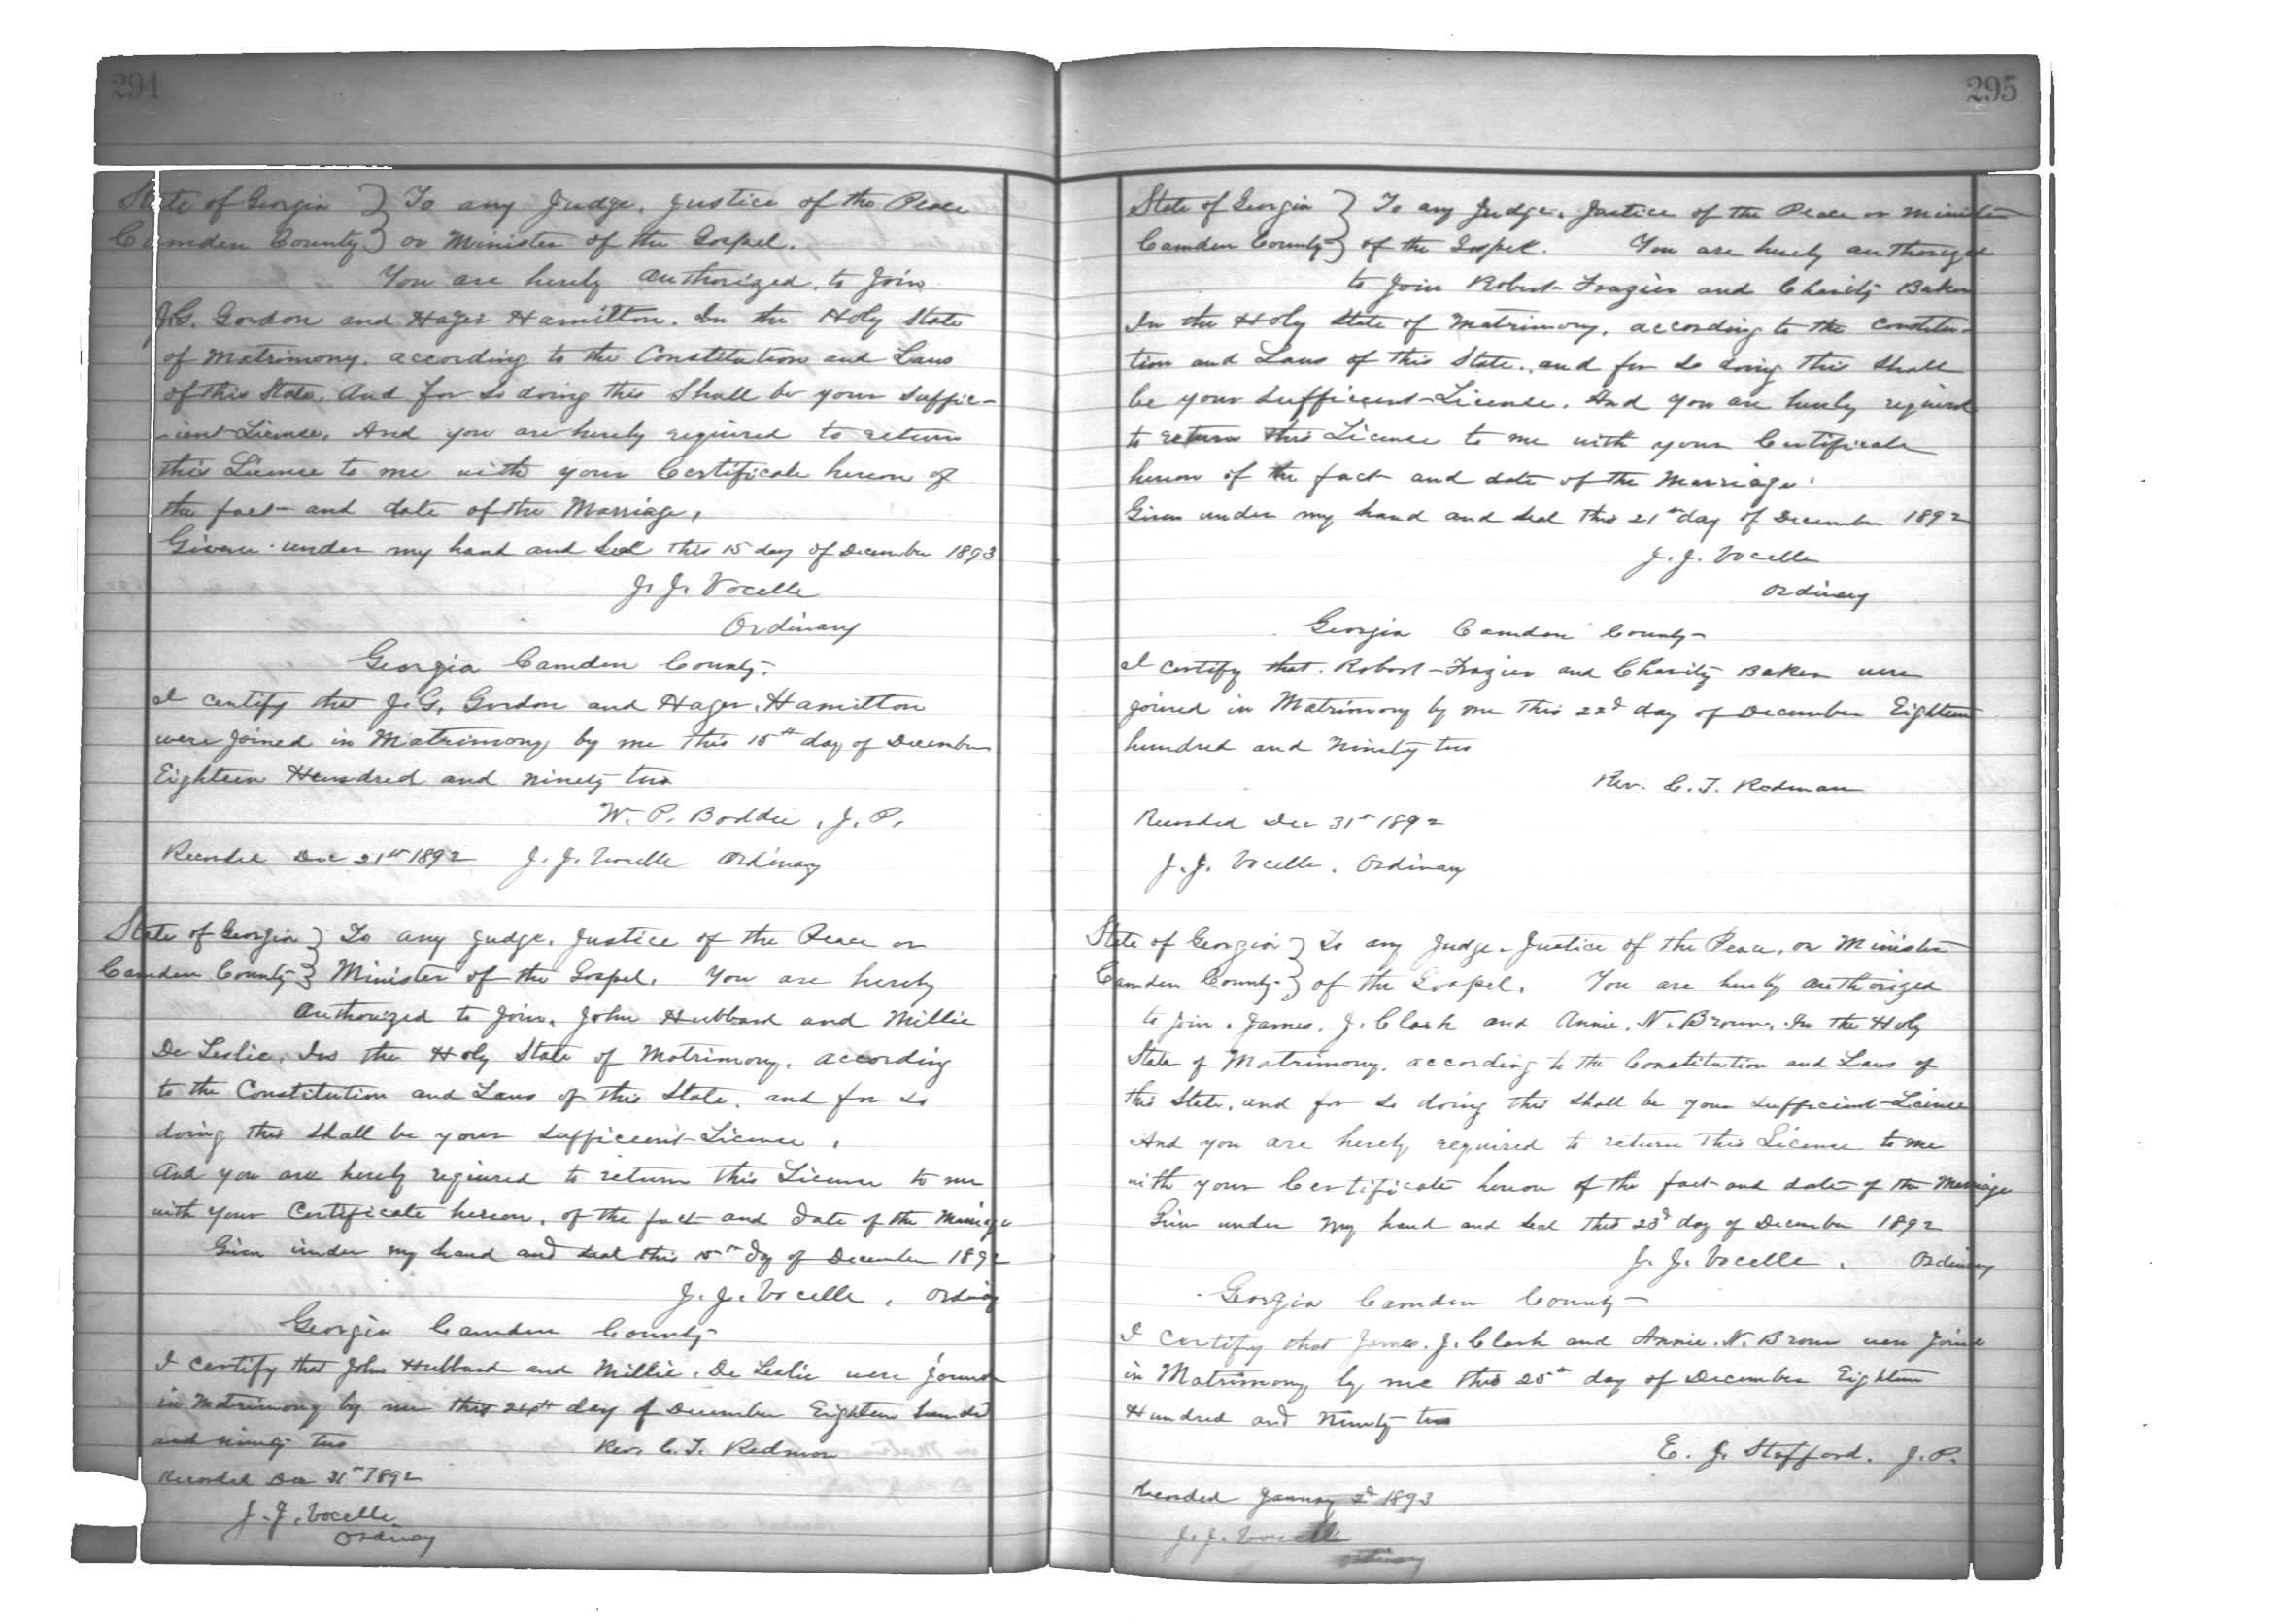 294
State of Georgia } To any Judge, Justice of the Peace
Camden County } or Minister of the Gospel.
You are hereby authorized, to Join
J.G. Gordon and Hager Hamilton. In the Holy State
of Matrimony. according to the Constitution and Laws
of this State, And for So doing this Shall be your Suffic-
-ient License, And you are hereby required to return
this License to me with your Certificate hereon of
the fact and date of the Marriage,
Given under my hand and Seal this 15 day of December 1893
J. J. Vocelle
Ordinary
Georgia Camden County-
I certify that J. G. Gordon and Hager Hamilton
were Joined in Matrimony by me this 15th day of December
Eighteen Hundred and ninety two
W. P. Boddie, J. P.
Recorded Dec 21st 1892 J. J. Vocelle Ordinary
State of Georgia } To any Judge, Justice of the Peace or
Camden County } Minister of the Gospel. You are hereby
authorized to Join, John Hubbard and Millie
De Leslie, In the Holy State of Matrimony, according
to the Constitution and Laws of this State, and for So
doing this Shall be your Sufficient License,
And you are hereby required to return this License to me
with your Certificate hereon, of the fact and date of the Marriage
Given under my hand and Seal this 15th day of December 1892
J. J. Vocelle, Ordinary
Georgia Camden County
I certify that John Hubbard and Millie. De Leslie were joined
in Matrimony by me this 24th day of December Eighteen hundred
and ninety two Rev. C. T. Redmon
Recorded Dec 31st 1892
J. J. Vocelle
Ordinary
295
State of Georgia } To any Judge, Justice of the Peace or Minister
Camden County } of the Gospel. You are hereby authorized
to Join Robert Frazier and Charity Baker
In the Holy State of Matrimony, according to the Constitu-
tion and Laws of this State, and for So doing this Shall
be your Sufficient License. And you are hereby required
to return this License to me with your Certificate
hereon of the fact and date of the Marriage.
Given under my hand and Seal this 21st day of December 1892
J. J. Vocelle
Ordinary
Georgia Camden County
I certify that Robert Frazier and Charity Baker were
joined in Matrimony by me this 22d day of December Eighteen
hundred and Ninety two
Rev. C. T. Redman
Recorded Dec 31st 1892
J. J. Vocelle. Ordinary
State of Georgia } To any Judge, Justice of the Peace, or Minister
Camden County } of the Gospel. You are hereby authorized
to join. James. J. Clark and Annie. N. Brown. In the Holy
State of Matrimony, according to the Constitution and Laws of
this State, and for So doing this Shall be your Sufficient License
And you are hereby required to return this License to me
with your Certificate hereon of the fact and date of the Marriage
Given under my hand and Seal this 23d day of December 1892
J. J. Vocelle, Ordinary
Georgia Camden County
I certify that James. J. Clark and Annie. N. Brown were Joined
in Matrimony by me this 25th day of December Eighteen
Hundred and Ninety two
E. J. Stafford. J.P.
Recorded January 2d 1893
J. J. Vocelle
Ordinary